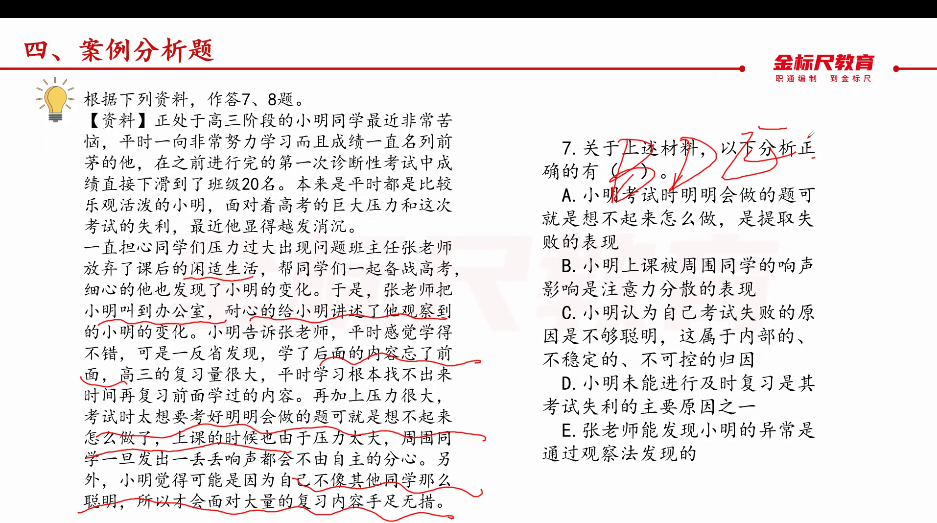 四、案例分析题
金标尺教育
职通编制 到金标尺
根据下列资料，作答7、8题。
【资料】正处于高三阶段的小明同学最近非常苦
恼，平时一向非常努力学习而且成绩一直名列前
茅的他，在之前进行完的第一次诊断性考试中成
绩直接下滑到了班级20名。本来是平时都是比较
乐观活泼的小明，面对着高考的巨大压力和这次
考试的失利，最近他显得越发消沉。
一直担心同学们压力过大出现问题班主任张老师
放弃了课后的闲适生活，帮同学们一起备战高考，
细心的他也发现了小明的变化。于是，张老师把
小明叫到办公室，耐心的给小明讲述了他观察到
的小明的变化。小明告诉张老师，平时感觉学得
不错，可是一反省发现，学了后面的内容忘了前
面，高三的复习量很大，平时学习根本找不出来
时间再复习前面学过的内容。再加上压力很大，
考试时太想要考好明明会做的题可就是想不起来
怎么做了，上课的时候也由于压力太大，周围同
学一旦发出一丢丢响声都会不由自主的分心。另
外，小明觉得可能是因为自己不像其他同学那么
聪明，所以才会面对大量的复习内容手足无措。
7. 关于上述材料，以下分析正
确的有（ ）。
BDE
A. 小明考试时明明会做的题可
就是想不起来怎么做，是提取失
败的表现
B. 小明上课被周围同学的响声
影响是注意力分散的表现
C. 小明认为自己考试失败的原
因是不够聪明，这属于内部的、
不稳定的、不可控的归因
D. 小明未能进行及时复习是其
考试失利的主要原因之一
E. 张老师能发现小明的异常是
通过观察法发现的
金标尺教育